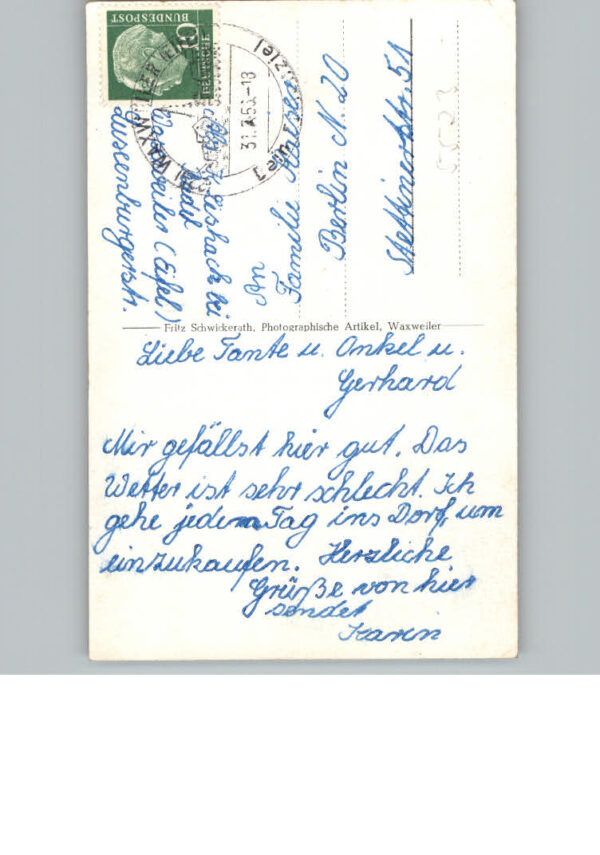 DEUTSCHE
BUNDESPOST
10
WAXWEILER
31.7.56.-18
bei
Waxweiler (Eifel)
Luxenburgerstr.
An
Familie
Berlin N. 20
Stettinerstr. 51
5523
Fritz Schwickerath, Photographische Artikel, Waxweiler
Liebe Tante u. Onkel u.
Gerhard
Mir gefällst hier gut. Das
Wetter ist sehr schlecht. Ich
gehe jeden Tag ins Dorf, um
einzukaufen. Herzliche
Grüße von hier
sendet
Karin